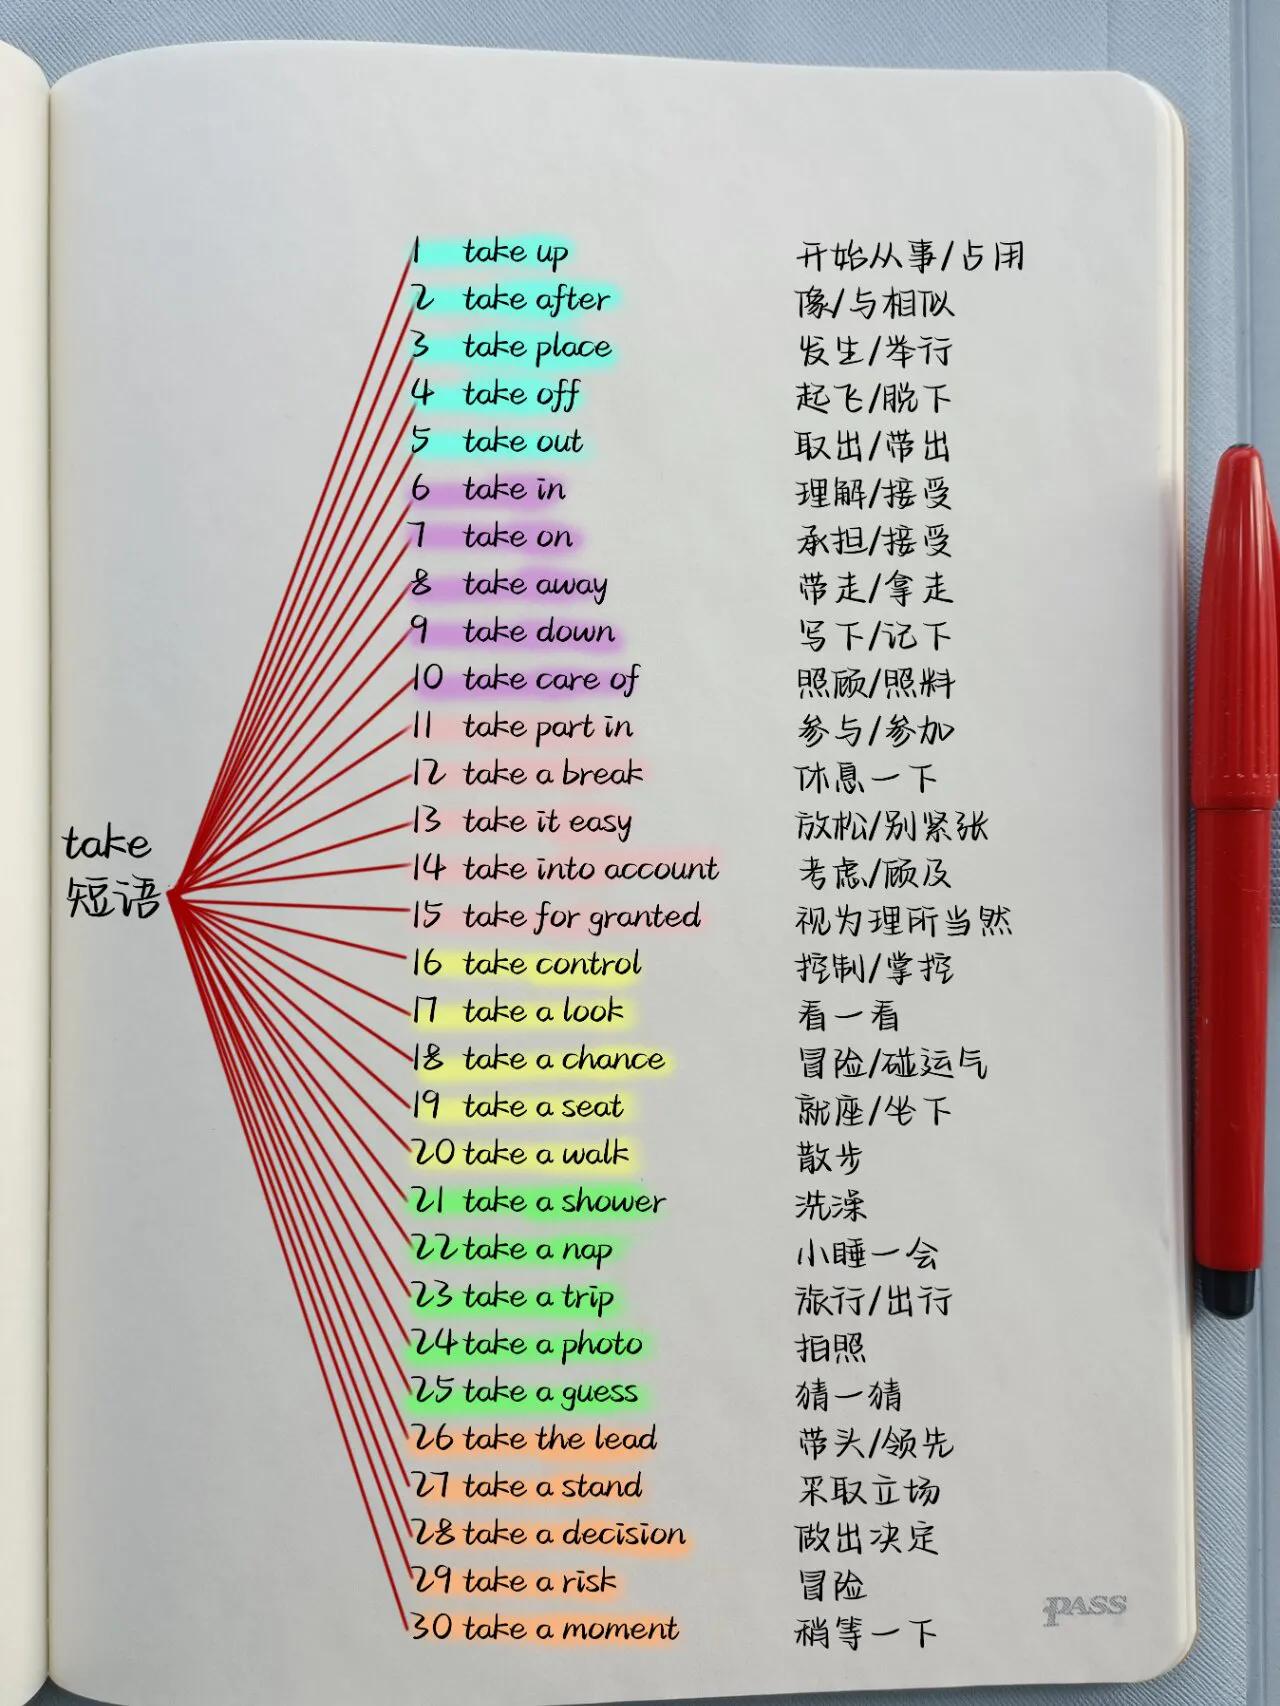 1 take up 开始从事/占用
2 take after 像/与相似
3 take place 发生/举行
4 take off 起飞/脱下
5 take out 取出/带出
6 take in 理解/接受
7 take on 承担/接受
8 take away 带走/拿走
9 take down 写下/记下
10 take care of 照顾/照料
11 take part in 参与/参加
12 take a break 休息一下
13 take it easy 放松/别紧张
take
短语
14 take into account 考虑/顾及
15 take for granted 视为理所当然
16 take control 控制/掌控
17 take a look 看一看
18 take a chance 冒险/碰运气
19 take a seat 就座/坐下
20 take a walk 散步
21 take a shower 洗澡
22 take a nap 小睡一会
23 take a trip 旅行/出行
24 take a photo 拍照
25 take a guess 猜一猜
26 take the lead 带头/领先
27 take a stand 采取立场
28 take a decision 做出决定
29 take a risk 冒险
30 take a moment 稍等一下
PASS